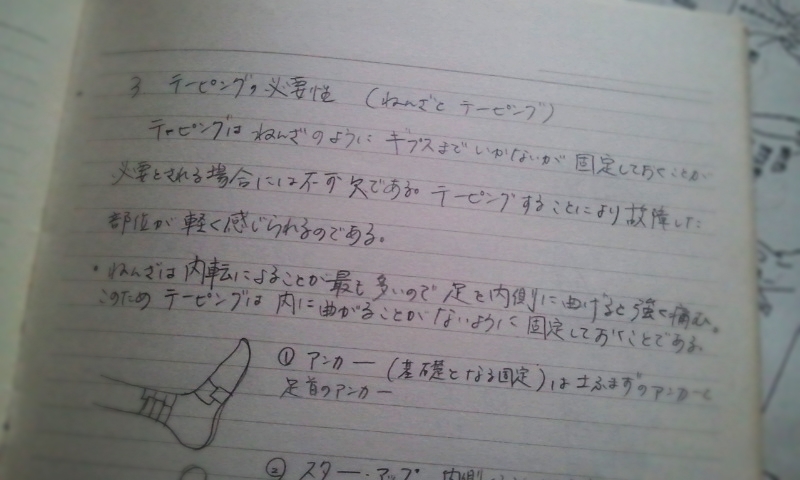 3 テーピングの必要性 (ねんざとテーピング)
テーピングはねんざのように ギプスまでいかないが 固定しておくことが
必要とされる場合には不可欠である。テーピングすることにより故障した
部位が軽く感じられるのである。
・ねんざは内転によることが最も多いので 足を内側に曲げると強く痛む。
このため テーピングは 内に曲がることがないように固定しておくことである。
① アンカー (基礎となる固定)は土ふまずのアンカーと
足首のアンカー
② スターアップ 内側